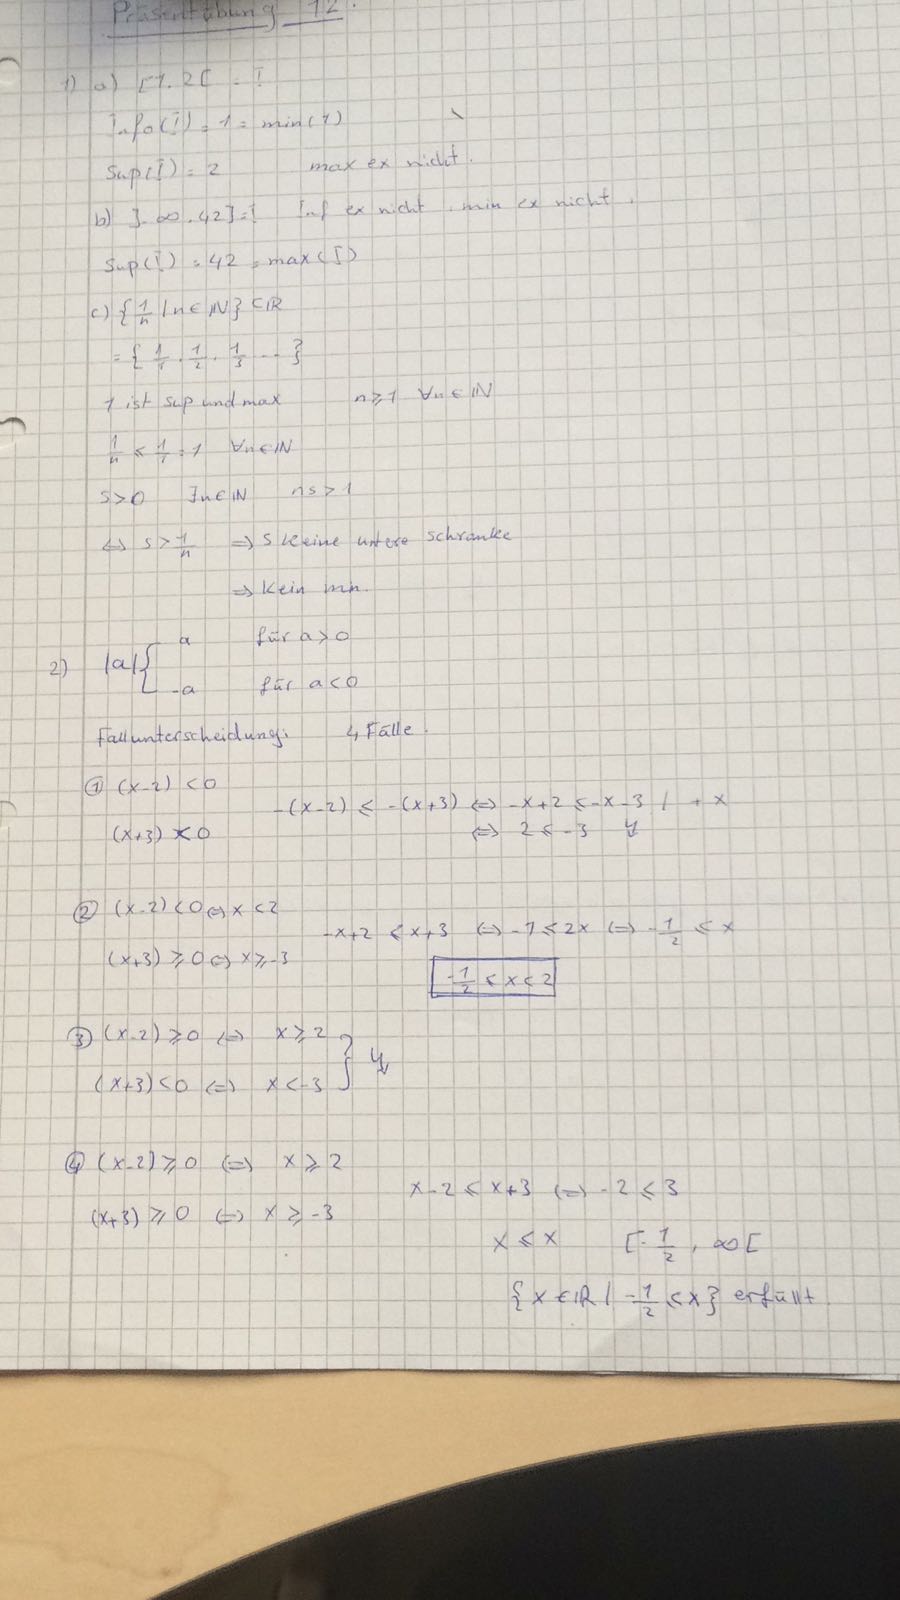 Präsentübung 12.
1) a) [1, 2[ = I
Info(I) = 1 = min(1)
Sup(I) = 2 max ex nicht.
b) ]-∞, 42] = I Inf ex nicht, min ex nicht.
Sup(I) = 42 = max(I)
c) {1/n | n ∈ ℕ} ⊂ ℝ
= {1/1, 1/2, 1/3 ...}
1 ist sup und max n ≥ 1 ∀n ∈ ℕ
1/n ≤ 1/1 = 1 ∀n ∈ ℕ
s > 0 ∃n ∈ ℕ ns > 1
⇔ s > 1/n ⇒ s keine untere schranke
⇒ kein min.
2) |a| { a für a > 0
-a für a < 0
Fallunterscheidung: 4 Fälle.
① (x-2) < 0
-(x-2) ≤ -(x+3) ⇔ -x+2 ≤ -x-3 | +x
(x+3) < 0 ⇔ 2 ≤ -3 ↯
② (x-2) < 0 ⇔ x < 2
-x+2 ≤ x+3 ⇔ -1 ≤ 2x ⇔ -1/2 ≤ x
(x+3) ≥ 0 ⇔ x ≥ -3
-1/2 ≤ x < 2
③ (x-2) ≥ 0 ⇔ x ≥ 2
(x+3) < 0 ⇔ x < -3 } ↯
④ (x-2) ≥ 0 ⇔ x ≥ 2
x-2 ≤ x+3 ⇔ -2 ≤ 3
(x+3) ≥ 0 ⇔ x ≥ -3
x ≤ x [-1/2, ∞[
{x ∈ ℝ | -1/2 ≤ x} erfüllt.